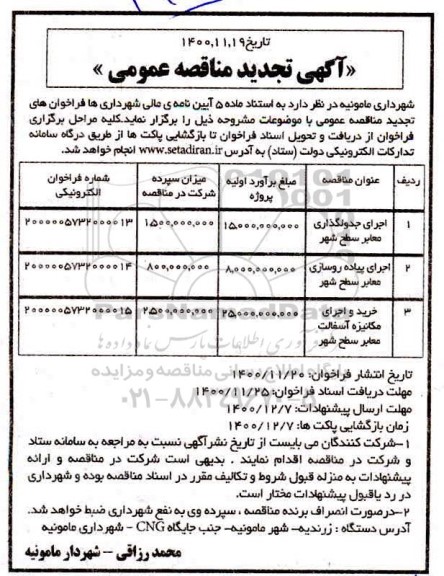 تاریخ ۱۴۰۰,۱۱,۱۹
«آگهی تجدید مناقصه عمومی »
شهرداری مامونیه در نظر دارد به استناد ماده ۵ آیین نامه ی مالی شهرداری ها فراخوان های
تجدید مناقصه عمومی با موضوعات مشروحه ذیل را برگزار نماید.کلیه مراحل برگزاری
فراخوان از دریافت و تحویل اسناد فراخوان تا بازگشایی پاکت ها از طریق درگاه سامانه
تدارکات الکترونیکی دولت (ستاد) به آدرس www.setadiran.ir انجام خواهد شد.
ردیف عنوان مناقصه مبلغ برآورد اولیه پروژه میزان سپرده شرکت در مناقصه شماره فراخوان الکترونیکی
۱ اجرای جدولگذاری معابر سطح شهر ۱۵,۰۰۰,۰۰۰,۰۰۰ ۱۵۰۰,۰۰۰,۰۰۰ ۲۰۰۰۰۰۵۷۳۲۰۰۰۰۱۳
۲ اجرای پیاده روسازی معابر سطح شهر ۸,۰۰۰,۰۰۰,۰۰۰ ۸۰۰,۰۰۰,۰۰۰ ۲۰۰۰۰۰۵۷۳۲۰۰۰۰۱۴
۳ خرید و اجرای مکانیزه آسفالت معابر سطح شهر ۲۵,۰۰۰,۰۰۰,۰۰۰ ۲۵۰۰,۰۰۰,۰۰۰ ۲۰۰۰۰۰۵۷۳۲۰۰۰۰۱۵
تاریخ انتشار فراخوان: ۱۴۰۰/۱۱/۲۰
مهلت دریافت اسناد فراخوان: ۱۴۰۰/۱۱/۲۵
مهلت ارسال پیشنهادات: ۱۴۰۰/۱۲/۷
زمان بازگشایی پاکت ها: ۱۴۰۰/۱۲/۷
۱–شرکت کنندگان می بایست از تاریخ نشرآگهی نسبت به مراجعه به سامانه ستاد
و شرکت در مناقصه اقدام نمایند . بدیهی است شرکت در مناقصه و ارائه
پیشنهادات به منزله قبول شروط و تکالیف مقرر در اسناد مناقصه بوده و شهرداری
در رد یاقبول پیشنهادات مختار است.
۲–درصورت انصراف برنده مناقصه ، سپرده وی به نفع شهرداری ضبط خواهد شد.
آدرس دستگاه : زرندیه– شهر مامونیه– جنب جایگاه CNG – شهرداری مامونیه
محمد رزاقی – شهردار مامونیه